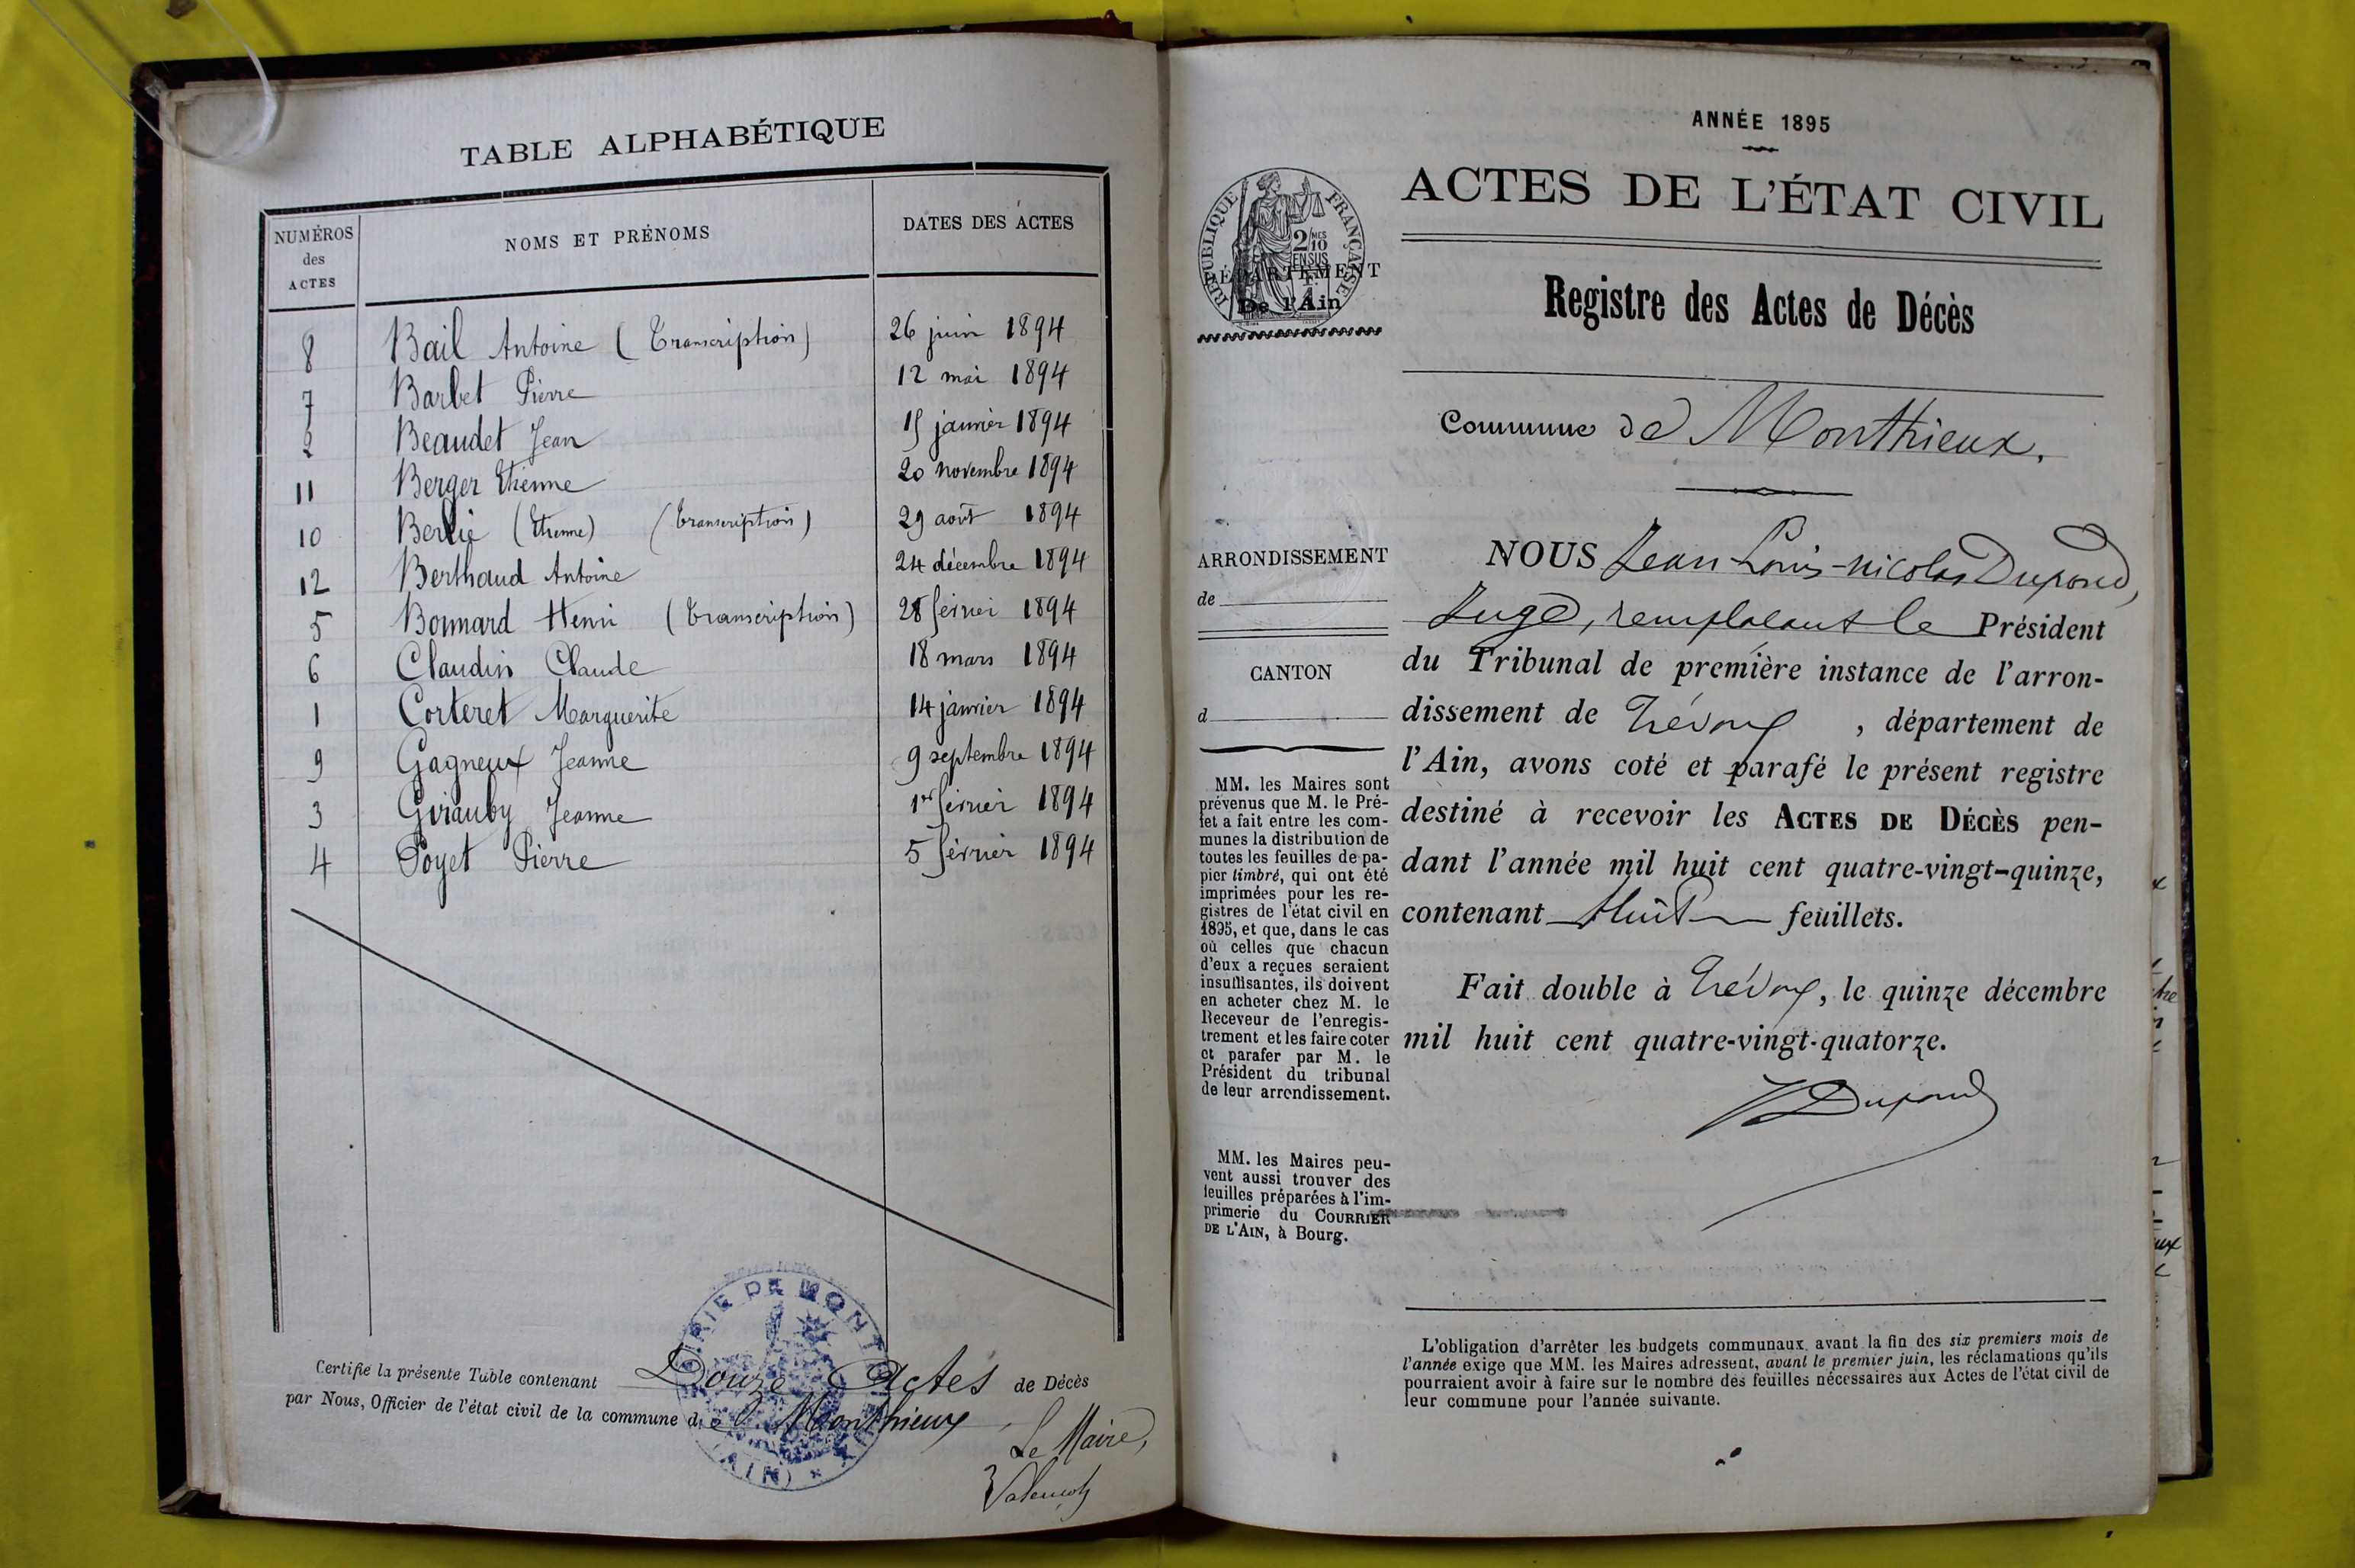 TABLE ALPHABÉTIQUE
NUMÉROS des ACTES NOMS ET PRÉNOMS DATES DES ACTES
8 Bail Antoine (Transcription) 26 juin 1894
7 Barbet Pierre 12 mai 1894
2 Beaudet Jean 15 janvier 1894
11 Berger Etienne 20 novembre 1894
10 Berlie (Etienne) (Transcription) 29 août 1894
12 Berthaud Antoine 24 décembre 1894
5 Bonnard Henri (Transcription) 28 février 1894
6 Claudin Claude 18 mars 1894
1 Corteret Marguerite 14 janvier 1894
9 Gagneux Jeanne 9 septembre 1894
3 Girauby Jeanne 1er février 1894
4 Poyet Pierre 5 février 1894
MAIRIE DE MONTHIEUX (AIN)
Certifie la présente Table contenant Douze Actes de Décès
par Nous, Officier de l'état civil de la commune de Monthieux,
Le Maire,
ANNÉE 1895
ACTES DE L'ÉTAT CIVIL
RÉPUBLIQUE FRANÇAISE
2/10 MES
EN SUS
DÉPARTEMENT
De l'Ain
Registre des Actes de Décès
Commune de Monthieux.
ARRONDISSEMENT
de
CANTON
d
MM. les Maires sont
prévenus que M. le Pré-
fet a fait entre les com-
munes la distribution de
toutes les feuilles de pa-
pier timbré, qui ont été
imprimées pour les re-
gistres de l'état civil en
1895, et que, dans le cas
où celles que chacun
d'eux a reçues seraient
insuffisantes, ils doivent
en acheter chez M. le
Receveur de l'enregis-
trement et les faire coter
et parafer par M. le
Président du tribunal
de leur arrondissement.
MM. les Maires peu-
vent aussi trouver des
feuilles préparées à l'im-
primerie du COURRIER
DE L'AIN, à Bourg.
NOUS Jean-Louis-Nicolas Dupond,
Juge, remplacant le Président
du Tribunal de première instance de l'arron-
dissement de Trévoux, département de
l'Ain, avons coté et parafé le présent registre
destiné à recevoir les ACTES DE DÉCÈS pen-
dant l'année mil huit cent quatre-vingt-quinze,
contenant Huit feuillets.
Fait double à Trévoux, le quinze décembre
mil huit cent quatre-vingt-quatorze.
Dupond
L'obligation d'arrêter les budgets communaux avant la fin des six premiers mois de
l'année exige que MM. les Maires adressent, avant le premier juin, les réclamations qu'ils
pourraient avoir à faire sur le nombre des feuilles nécessaires aux Actes de l'état civil de
leur commune pour l'année suivante.